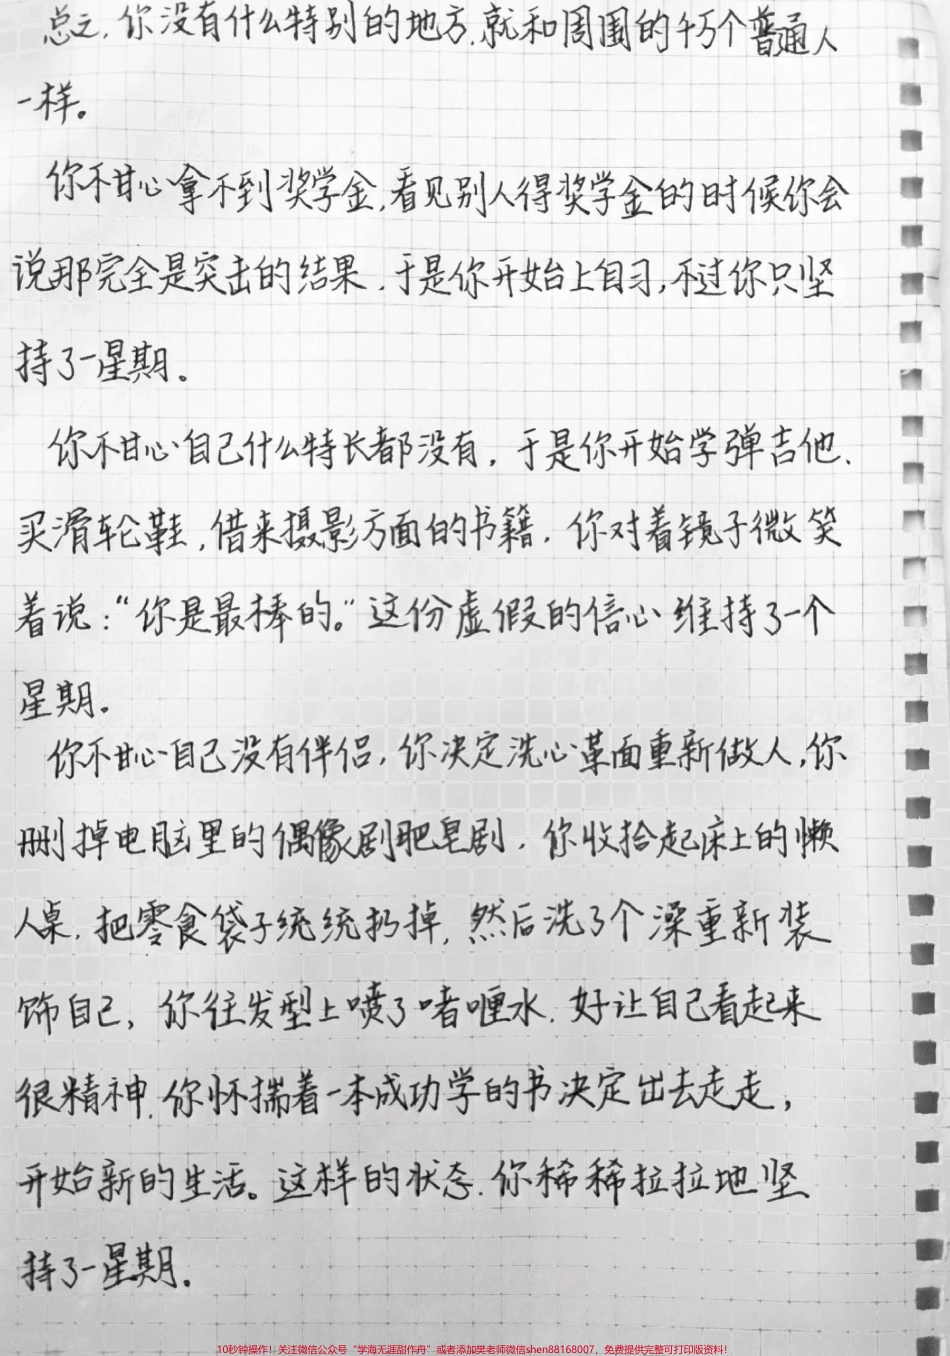 总之,你没有什么特别的地方,就和周围的千万个普通人
一样。
你不甘心拿不到奖学金,看见别人得奖学金的时候你会
说那完全是突击的结果,于是你开始上自习,不过你只坚
持了一星期。
你不甘心自己什么特长都没有,于是你开始学弹吉他、
买滑轮鞋,借来摄影方面的书籍,你对着镜子微笑
着说:“你是最棒的。”这份虚假的信心维持了一个
星期。
你不甘心自己没有伴侣,你决定洗心革面重新做人,你
删掉电脑里的偶像剧肥皂剧,你收拾起床上的懒
人桌,把零食袋子统统扔掉,然后洗了个澡重新装
饰自己,你往发型上喷了啫喱水,好让自己看起来
很精神,你怀揣着一本成功学的书决定出去走走,
开始新的生活。这样的状态,你稀稀拉拉地坚
持了一星期。
10秒钟操作!关注微信公众号“学海无涯甜作舟”或者添加樊老师微信shen88168007,免费提供完整可打印版资料!